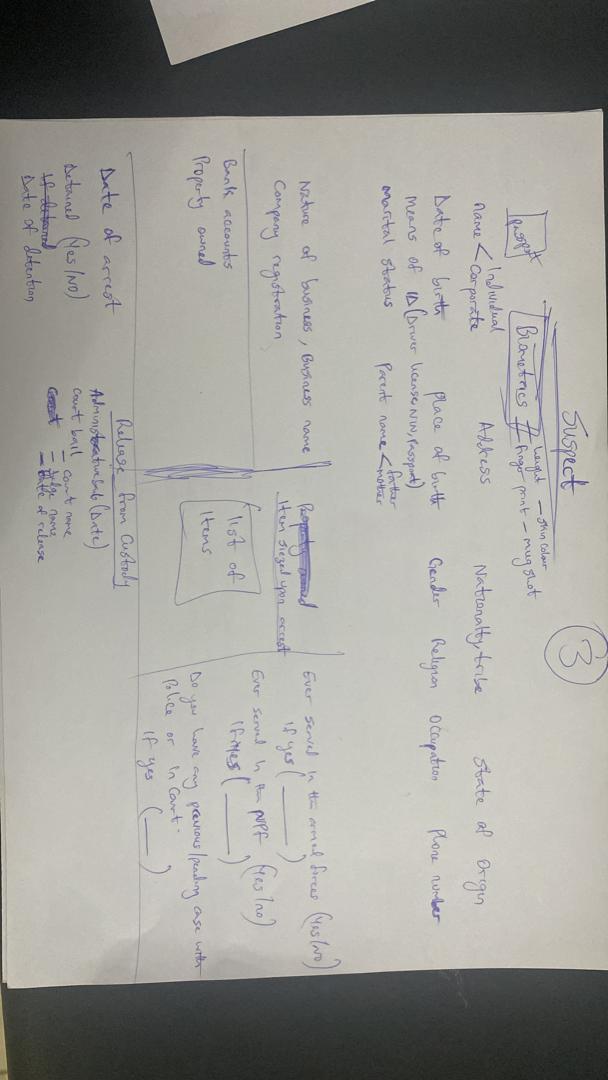 Suspect
3
passpt
Biometrics
height — skin colour
finger print — mugshot
name < Individual
Corporate
Address
Nationalty, tribe
State of Origin
Date of birth
place of birth
Gender
Religion
Occupation
Phone number
means of ID (Driver license NIN, Passport)
marital status
Parent name < father
mother
Nature of business, Business name
Company registration
Bank accounts
Property owned
Property owned
Item siezed upon arrest
list of
Items
Ever served in the armed forces (Yes/NO)
If yes (______)
Ever served in the NPF (Yes/no)
If yes (______)
Do you have any previous/pending case with
Police or in Court.
If yes (____)
Date of arrest
Detained (Yes/NO)
If detained
Date of detention
Release from Custody
Administrative bail (Date)
Court bail
— Court name
— Judge name
— Date of release